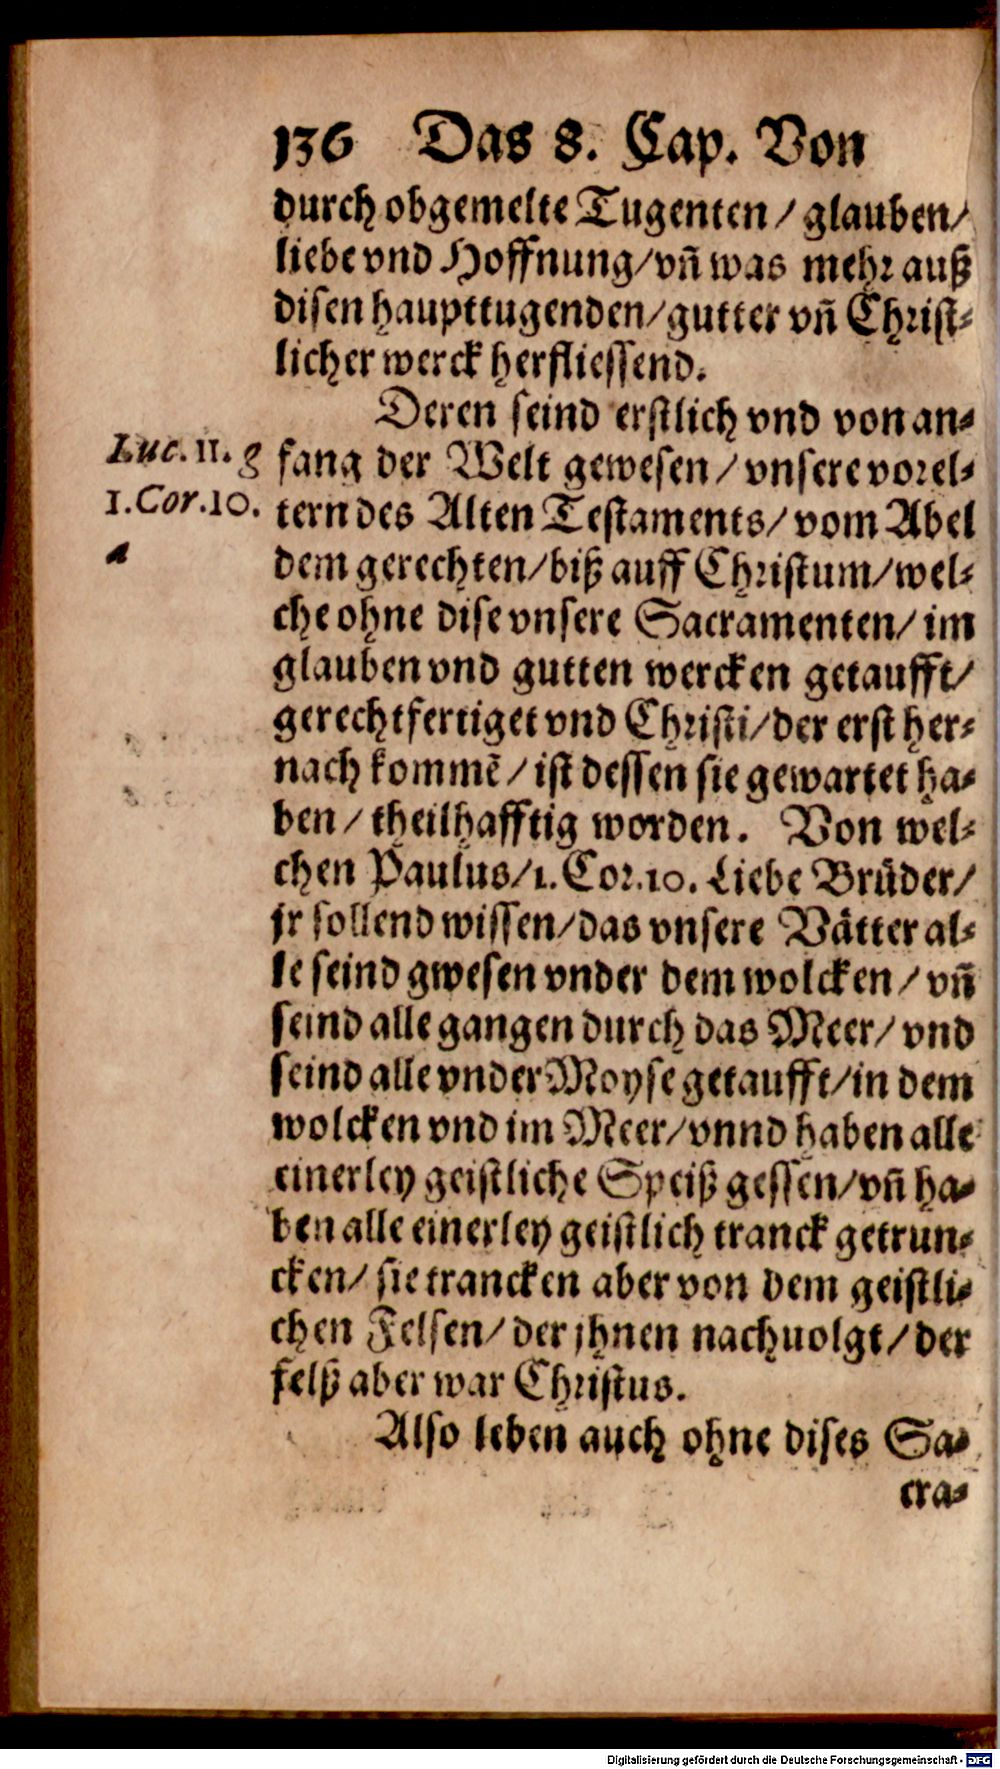 136 Das 8. Cap. Von
durch obgemelte Tugenten / glauben /
liebe vnd Hoffnung / vn̄ was mehr auß
disen haupttugenden / gutter vn̄ Christ-
licher werck herfliessend.
Deren seind erstlich vnd von an-
Luc. 11. g
fang der Welt gewesen / vnsere vorel-
1. Cor. 10.
a
tern des Alten Testaments / vom Abel
dem gerechten / biß auff Christum / wel-
che ohne dise vnsere Sacramenten / im
glauben vnd gutten wercken getaufft /
gerechtfertiget vnd Christi / der erst her-
nach kommē / ist dessen sie gewartet ha-
ben / theilhafftig worden. Von wel-
chen Paulus / 1. Cor. 10. Liebe Brüder /
jr sollend wissen / das vnsere Vätter al-
le seind gwesen vnder dem wolcken / vn̄
seind alle gangen durch das Meer / vnd
seind alle vnder Moyse getaufft / in dem
wolcken vnd im Meer / vnnd haben alle
einerley geistliche Speiß gessen / vn̄ ha-
ben alle einerley geistlich tranck getrun-
cken / sie trancken aber von dem geistli-
chen Felsen / der jhnen nachuolgt / der
felß aber war Christus.
Also leben auch ohne dises Sa-
cra-
Digitalisierung gefördert durch die Deutsche Forschungsgemeinschaft - DFG